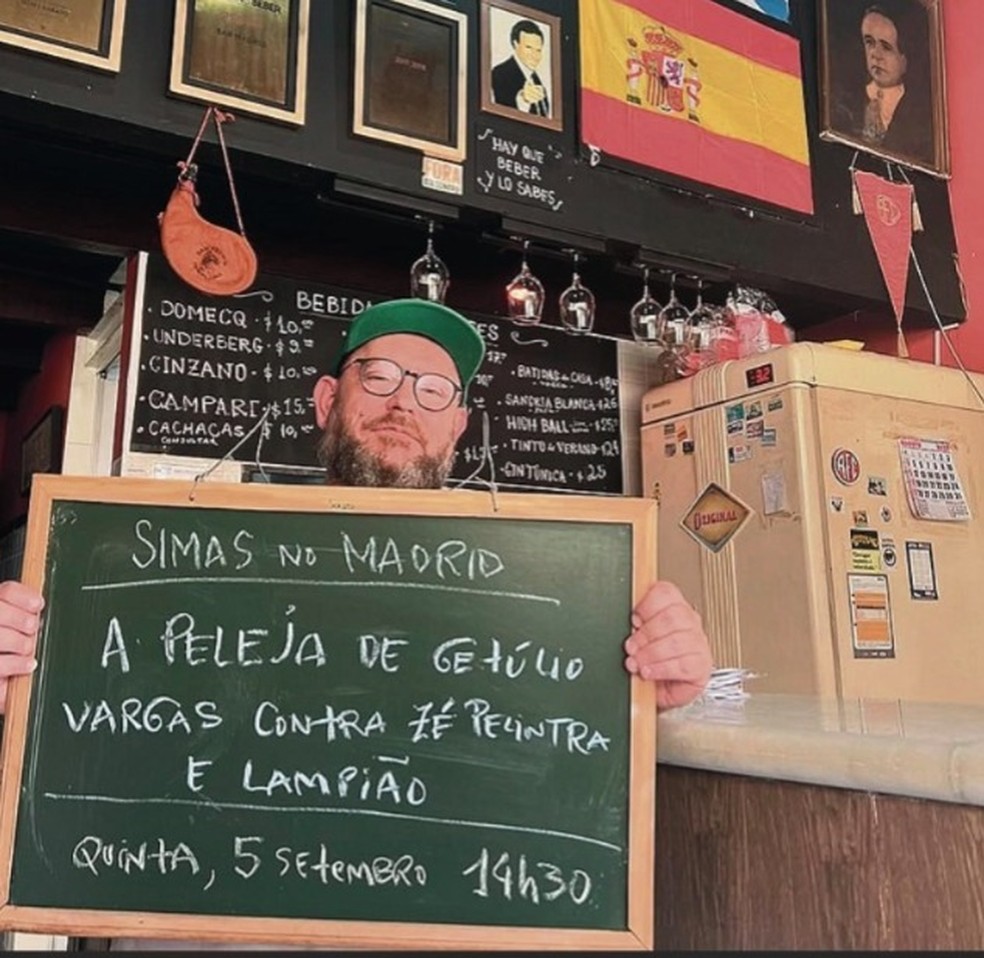 BEBER
HAY QUE
BEBER
Y LO SABES
FORA
BEBIDA
• DOMECQ • $10,00
• UNDERBERG • $9,00
• CINZANO • $10,00
• CAMPARI • $15,00
• CACHAÇAS $10,00
CONSULTAR
• BATIDAS DA CASA
• SANGRIA BLANCA
HIGH BALL
• TINTO DE VERANO
GINTÓNICA • $25
-32
ORIGINAL
SIMAS NO MADRID
A PELEJA DE GETÚLIO
VARGAS CONTRA ZÉ PELINTRA
E LAMPIÃO
QUINTA, 5 SETEMBRO 14h30